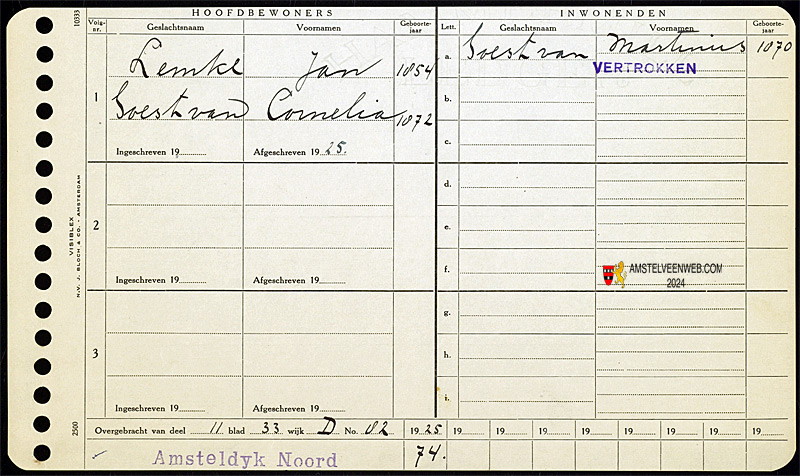 HOOFDBEWONERS
Volg-nr. Geslachtsnaam Voornamen Geboorte-jaar
1
Lemke Jan 1854
Soest van Cornelia 1872
Ingeschreven 19 Afgeschreven 19 25.
2
Ingeschreven 19 Afgeschreven 19
3
Ingeschreven 19 Afgeschreven 19
INWONENDEN
Lett. Geslachtsnaam Voornamen Geboorte-jaar
a. Soest van Martinus 1870
VERTROKKEN
b.
c.
d.
e.
f.
AMSTELVEENWEB.COM
2024
g.
h.
i.
Overgebracht van deel 11 blad 33 wijk D No. 82 19 25 19 19 19 19 19 19 19 19
Amsteldyk Noord 74.
10333
VISIBLEX
N.V. J. BLOCH & CO. - AMSTERDAM
2500